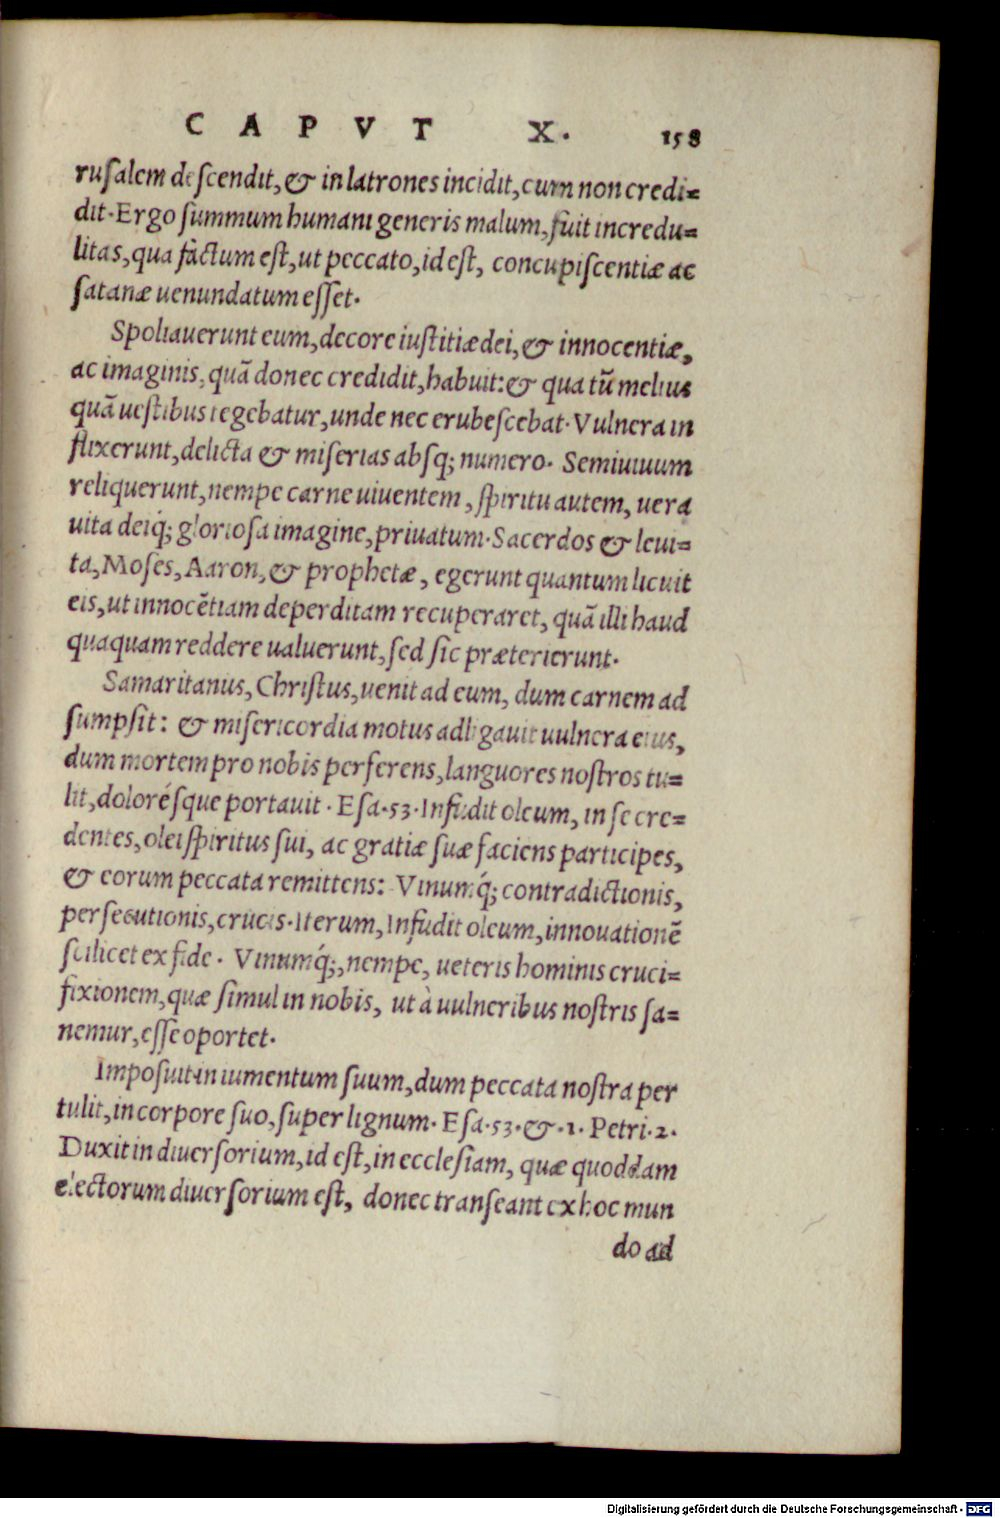 CAPVT X. 158
rusalem descendit, & in latrones incidit, cum non credi=
dit. Ergo summum humani generis malum, fuit incredu=
litas, qua factum est, ut peccato, id est, concupiscentiæ ac
satanæ uenundatum esset.
Spoliauerunt eum, decore iustitiæ dei, & innocentiæ,
ac imaginis, quā donec credidit, habuit: & qua tū melius
quā uestibus tegebatur, unde nec erubescebat. Vulnera in
flixerunt, delicta & miserias absq; numero. Semiuiuum
reliquerunt, nempe carne uiuentem, spiritu autem, uera
uita deiq́; gloriosa imagine, priuatum. Sacerdos & leui=
ta, Moses, Aaron, & prophetæ, egerunt quantum licuit
eis, ut innocētiam deperditam recuperaret, quā illi haud
quaquam reddere ualuerunt, sed sic præterierunt.
Samaritanus, Christus, uenit ad eum, dum carnem ad
sumpsit: & misericordia motus adligauit uulnera eius,
dum mortem pro nobis perferens, languores nostros tu=
lit, dolorésque portauit. Esa. 53. Infudit oleum, in se cre=
dentes, olei spiritus sui, ac gratiæ suæ faciens participes,
& eorum peccata remittens: Vinumq́; contradictionis,
persecutionis, crucis. Iterum, Infudit oleum, innouationē
scilicet ex fide. Vinumq́;, nempe, ueteris hominis cruci=
fixionem, quæ simul in nobis, ut à uulneribus nostris sa=
nemur, esse oportet.
Imposuit in iumentum suum, dum peccata nostra per
tulit, in corpore suo, super lignum. Esa. 53. & .1. Petri. 2.
Duxit in diuersorium, id est, in ecclesiam, quæ quoddam
electorum diuersorium est, donec transeant ex hoc mun
do ad
Digitalisierung gefördert durch die Deutsche Forschungsgemeinschaft - DFG